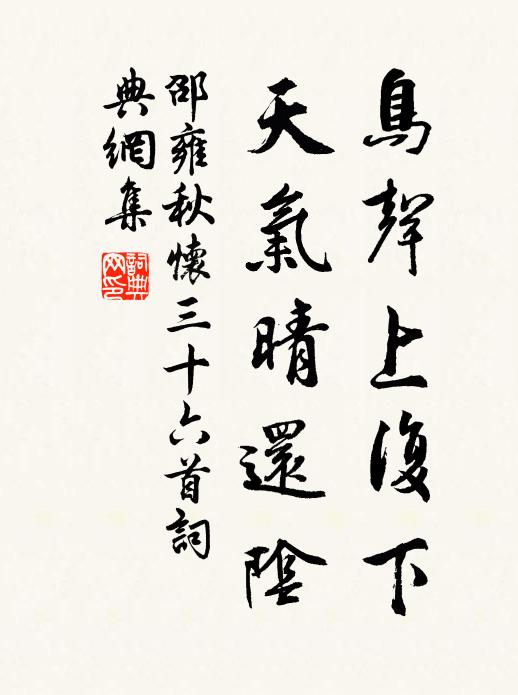 鳥聲上復下
天氣晴還陰
邵雍秋懷三十六首詞
典網集
詞典网印